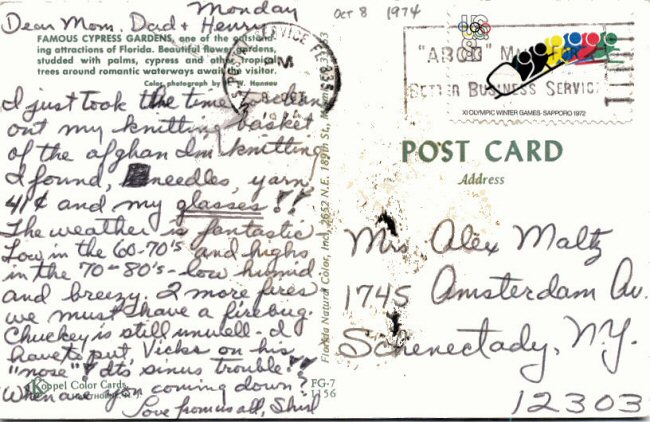 Monday
Dear Mom, Dad + Henry
FAMOUS CYPRESS GARDENS, one of the outstand-
ing attractions of Florida. Beautiful flower gardens,
studded with palms, cypress and other tropical
trees around romantic waterways await the visitor.
Color photograph by W. Hannau
I just took the time to clean
out my knitting basket
of the afghan Im knitting
I found, needles, yarn,
41¢ and my glasses!!
The weather is fantastic-
Low in the 60-70's and highs
in the 70-80's - low humid
and breezy. 2 more fires
we must have a firebug.
Chuckey is still unwell - I
have to put, Vicks on his
"nose" its sinus trouble!!
When are you coming down?
Love from us all, Shirl
Koppel Color Cards
HAWTHORNE, N. J.
FG-7
1156
Florida Natural Color, Inc., 2652 N.E. 189th St.,
Oct 8 1974
PM
"ABCD" MAIL FOR
BETTER BUSINESS SERVICE
8c
US
XI OLYMPIC WINTER GAMES · SAPPORO 1972
POST CARD
Address
Mrs Alex Maltz
1745 Amsterdam Av.
Schenectady, N.Y.
12303